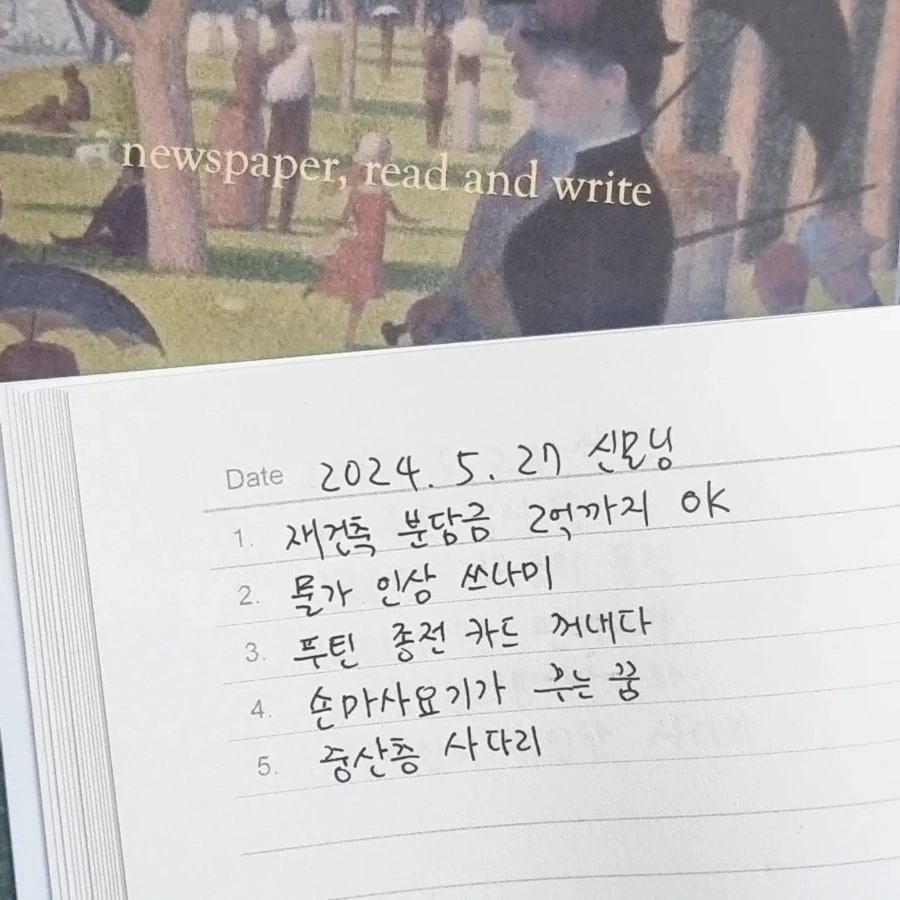 newspaper, read and write
Date 2024. 5. 27 신모닝
1. 재건축 분담금 2억까지 OK
2. 물가 인상 쓰나미
3. 푸틴 종전 카드 꺼내다
4. 손마사요기가 꾸는 꿈
5. 중산층 사다리